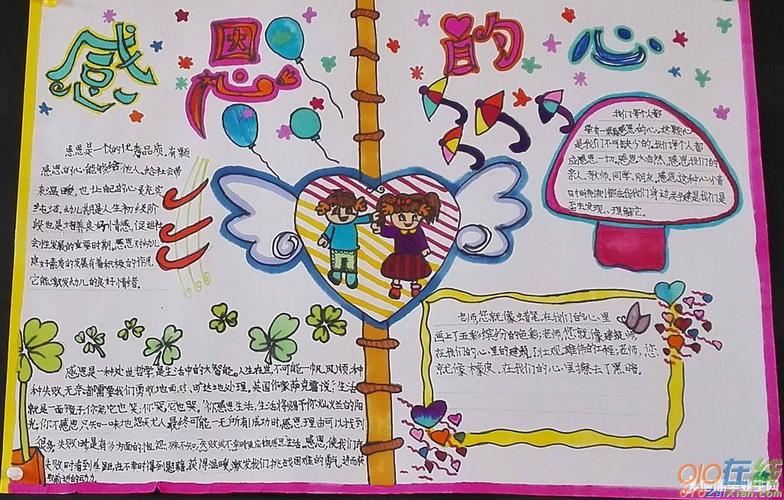 感恩的心
感恩是一切的优秀品质。有颗
感恩的心能够给他人、给社会带
来温暖，也让自己的心灵充实
幼儿期是人生初级阶
段也是培养良好情感，促进社
会性发展的重要时期。感恩对幼儿
良好素质的发展有着积极的作用
它能激发幼儿的良好情绪。
我们每个人都
应有一颗感恩的心，这颗心
是我们不可缺少的。我们每个人都
应感恩一切。感恩大自然，感恩我们的
亲人、教师、同学、朋友。感恩这种心情
时时刻刻都在我们身边，关键是我们是
否去发现、理解它。
老师，您就像蜡笔，在我们的心里
画上了五彩缤纷的色彩；老师，您就像建筑师，
在我们的心里的建筑了壮观雄伟的工程；老师，您
就像橡皮，在我们的心里擦去了黑暗
感恩是一种处世哲学，是生活中的大智慧。人生在世，不可能一帆风顺，种
种失败、无奈都需要我们勇敢地面对、旷达地处理。英国作家萨克雷说：生活
就是一面镜子，你笑，它也笑，你哭，它也哭。"你感恩生活，生活将赐予你灿烂的阳
光，你不感恩，只知一味地怨天尤人，最终可能一无所有！成功时，感恩理由可以找到
很多，失败时
失败时看到差距，在不幸时得到慰藉，获得温暖，激发我们挑战困难的勇气，进而获
取前进的动力。
910在线